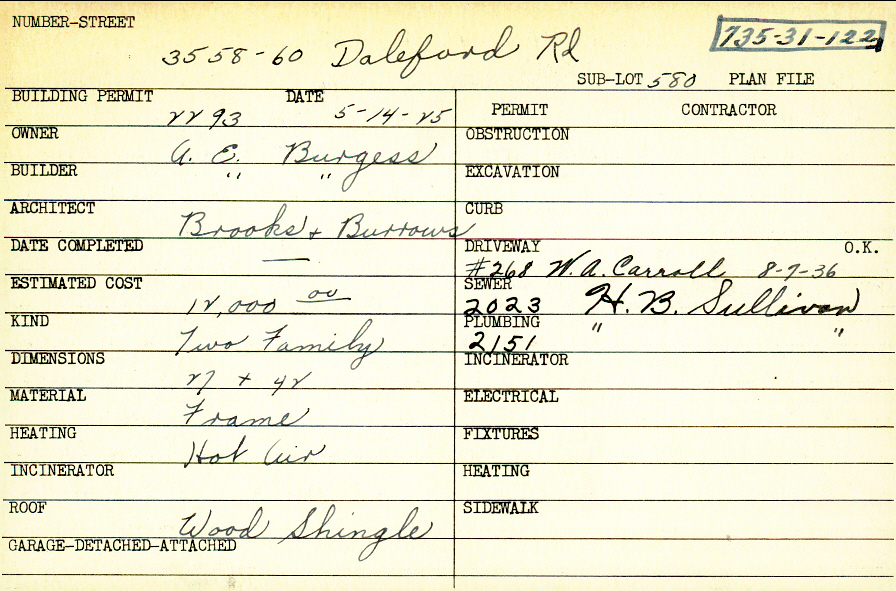 NUMBER-STREET
3558-60 Daleford Rd
735-31-122
SUB-LOT 580 PLAN FILE
BUILDING PERMIT 2293 DATE 5-14-25
PERMIT CONTRACTOR
OWNER A. E. Burgess
OBSTRUCTION
BUILDER " "
EXCAVATION
ARCHITECT Brooks + Burrows
CURB
DATE COMPLETED —
DRIVEWAY O.K.
#268 W. A. Carroll 8-7-36
ESTIMATED COST 12,000 00
SEWER
2023 H. B. Sullivan
KIND Two Family
PLUMBING " "
2151
DIMENSIONS 27 + 42
INCINERATOR
MATERIAL Frame
ELECTRICAL
HEATING Hot Air
FIXTURES
INCINERATOR
HEATING
ROOF Wood Shingle
SIDEWALK
GARAGE-DETACHED-ATTACHED